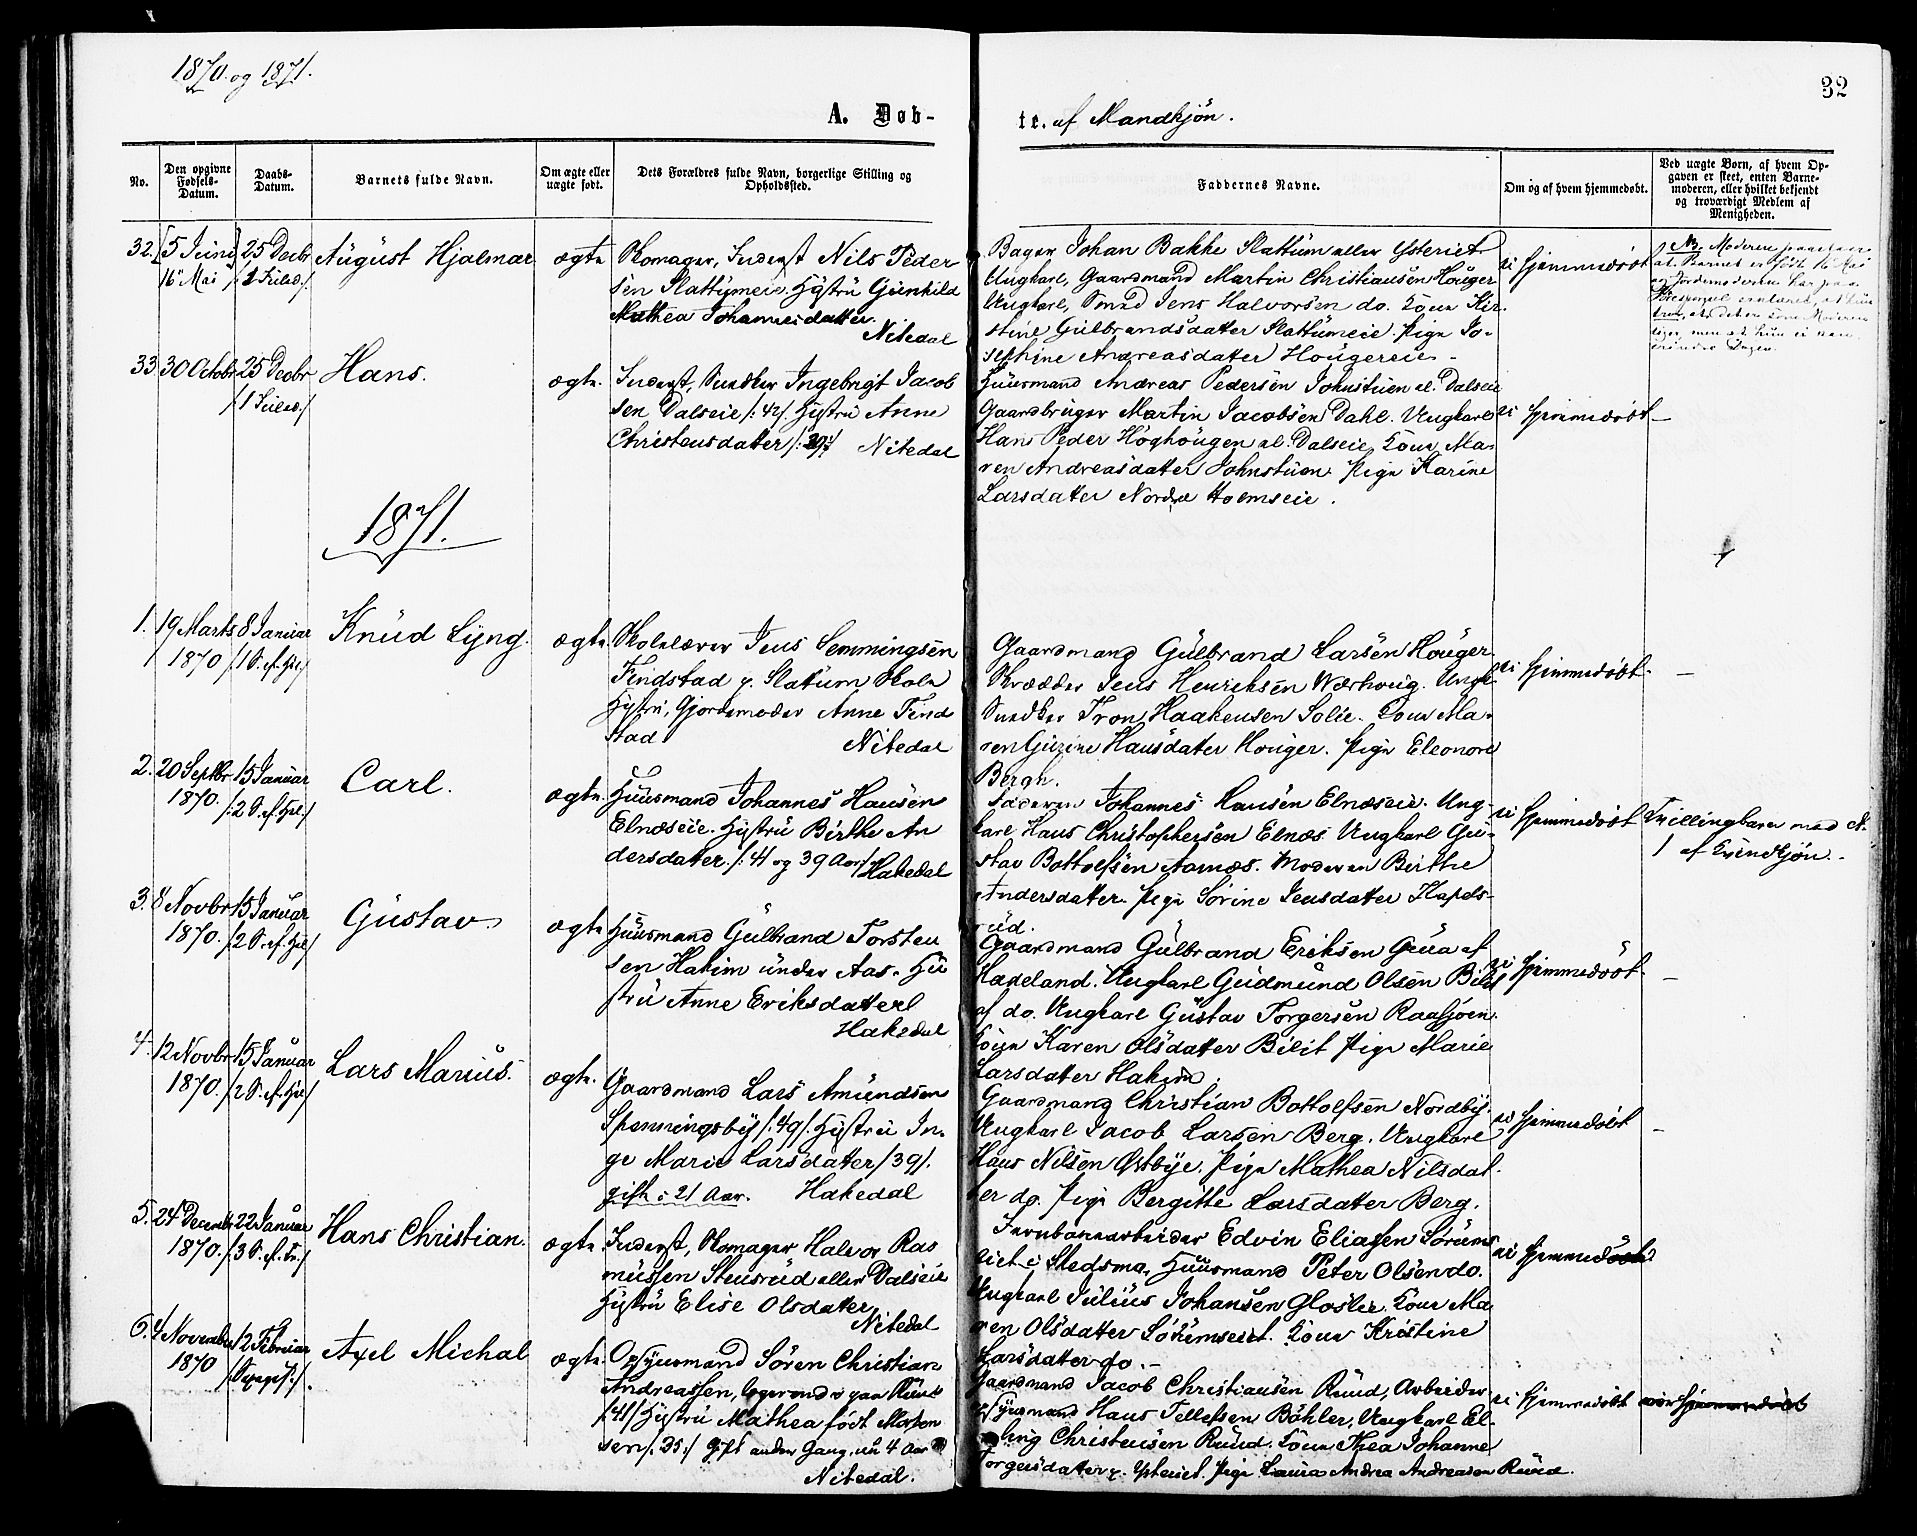 1870. og 1871.
32
A. Døb-
te. af Mandkjön.
No.
Den opgivne
Fødsels-
Datum.
Daabs-
Datum.
Barnets fulde Navn.
Om ægte eller
uægte født.
Dets Forældres fulde Navn, borgerlige Stilling og
Opholdssted.
Faddernes Navne.
Om og af hvem hjemmedøbt.
Ved uægte Børn, af hvem Op-
gaven er skeet, enten Barne-
moderen, eller hvilket bekjendt
og troværdigt Medlem af
Menigheden.
32. [5 Juni]
16de Mai
25 Decbr
/: 1 Juled :/
August Hjalmar
ægte
Skomager, Inderst Nils Peder
sen Slattumeie. Hustru Gunhild
Mathea Johannesdatter.
Nitedal
Bager Johan Bakke Slattum eller Ysteriet.
Ungkarl, Gaardmand Martin Christiansen Houger
Ungkarl, Smed Jens Halvorsen do. Kone Kir-
stine Gulbrandsdatter Slattumeie. Pige Jo-
sephine Andreasdatter Hougereie.
ei hjemmedöbt
NB. Moderen paastaar
at Barnet er födt 16 Mai
33
30 Octobr
25 Decbr
/1 Juled./
Hans.
ægte.
Inderst, Snedker Ingebrigt Jacob
sen Dalseie /: 42/. Hustru Anne
Christensdatter /: 39 :/ Nitedal
Huusmand Andreas Pedersen Johnstuen el. Dalseie
Gaardbruger Martin Jacobsen Dahl. Ungkarl
Hans Peder Höghougen el. Dalseie, Kone Ma-
ren Andreasdatter Johnstuen. Pige Karine
Larsdatter Nordre Holmseie.
ei hjemmedöbt
1871.
1.
19 Marts
1870
8 Januar
/1 S. ef. H3k/
Knud Lyng.
ægte.
Skolelærer Jens Semmingsen
Findstad p. Slatum Skole
Hustru, Gjordemoder Anne Find
stad
Nitedal
Gaardmand Gulbrand Larsen Houger
Skrædder Jens Henriksen Wærhoug. Ungk.
Snedker Tron Haakensen Solie. Kone Ma-
ren Gurine Hansdatter Houger. Pige Eleonore
Bergh.
ei hjemmedöbt. –
2.
20 Septbr
1870.
15 Januar
/: 2 S. ef. H3k :/
Carl.
ægte.
Huusmand Johannes Hansen
Elnæseie. Hustru Birthe An
dersdatter. /: 41 og 39 Aar/
Hakedal
Faderen Johannes Hansen Elnæseie. Ung-
karl Hans Christophersen Elnæs. Ungkarl Gu-
stav Bottolfsen Aamæs. Moderen Birthe
Andersdatter. Pige Sörine Jensdatter Hapds-
rud.
ei hjemmedöbt
Tvillingbarn med N.
1 af Qvindkjön.
3.
8 Novbr
1870.
15 Januar
/2 S. ef. H3k/
Gustav.
ægte
Huusmand Gulbrand Torsten
sen Hakim under Aas. Hu
stru Anne Eriksdatter
Hakedal
Gaardmand Gulbrand Eriksen Grua af
Hadeland. Ungkarl Gudmund Olsen Bilit
af do. Ungkarl Gustav Torgersen Raasjöen.
Kone Karen Olsdatter Bilit Pige Marie
Larsdatter Hakim.
ei hjemmedöbt. –
4.
12 Novbr
1870.
15 Januar
/2 S. ef. H3k/
Lars Marius.
ægte.
Gaardmand Lars Amundsen
Spenningsby /: 49/. Hustru In-
ge Marie Larsdatter /39/.
gift i 21 Aar. Hakedal
Gaardmand Christian Bottolfsen Nordby.
Ungkarl Jacob Larsen Berg. Ungkarl
Hans Nilsen Østbye. Pige Mathea Nilsdat-
ter do. Pige Bergitte Larsdatter Berg.
ei hjemmedöbt –
5.
24 Decembr
1870.
22 Januar
/3 S. ef. H3k/
Hans Christian.
ægte
Inderst, Skomager Halvor Ras
mussen Stensrud eller Dalseie
Hustru Elise Olsdatter
Nitedal
Jernbanearbeider Edvin Eliassen Sörums
eiet i Skedsmo, Huusmand Peter Olsen do.
Ungkarl Julius Johansen Glosler. Kone Ma
ren Olsdatter Sörumseiet. Kone Kristine
Larsdatter do.
ei hjemmedöbt
6.
4 November
1870
12 Februar
/: Sexages :/.
Axel Michal
ægte.
Opsynsmand Sören Christian
Andreassen, Logerende paa Ruud
/41/ Hustru Mathea födt Morten
sen /: 35 :/ gift anden Gang, nu 4 Aar
Nitedal.
Gaardmand Jacob Christiansen Ruud, Arbeider-
opsynsmand Hans Tellefsen Böhler, Ungkarl El-
ling Christensen Ruud. Kone Thea Johanne
Torgersdatter p. Ysteriet. Pige Laura Andrea Andreasen Ruud.
ei hjemmedöbt